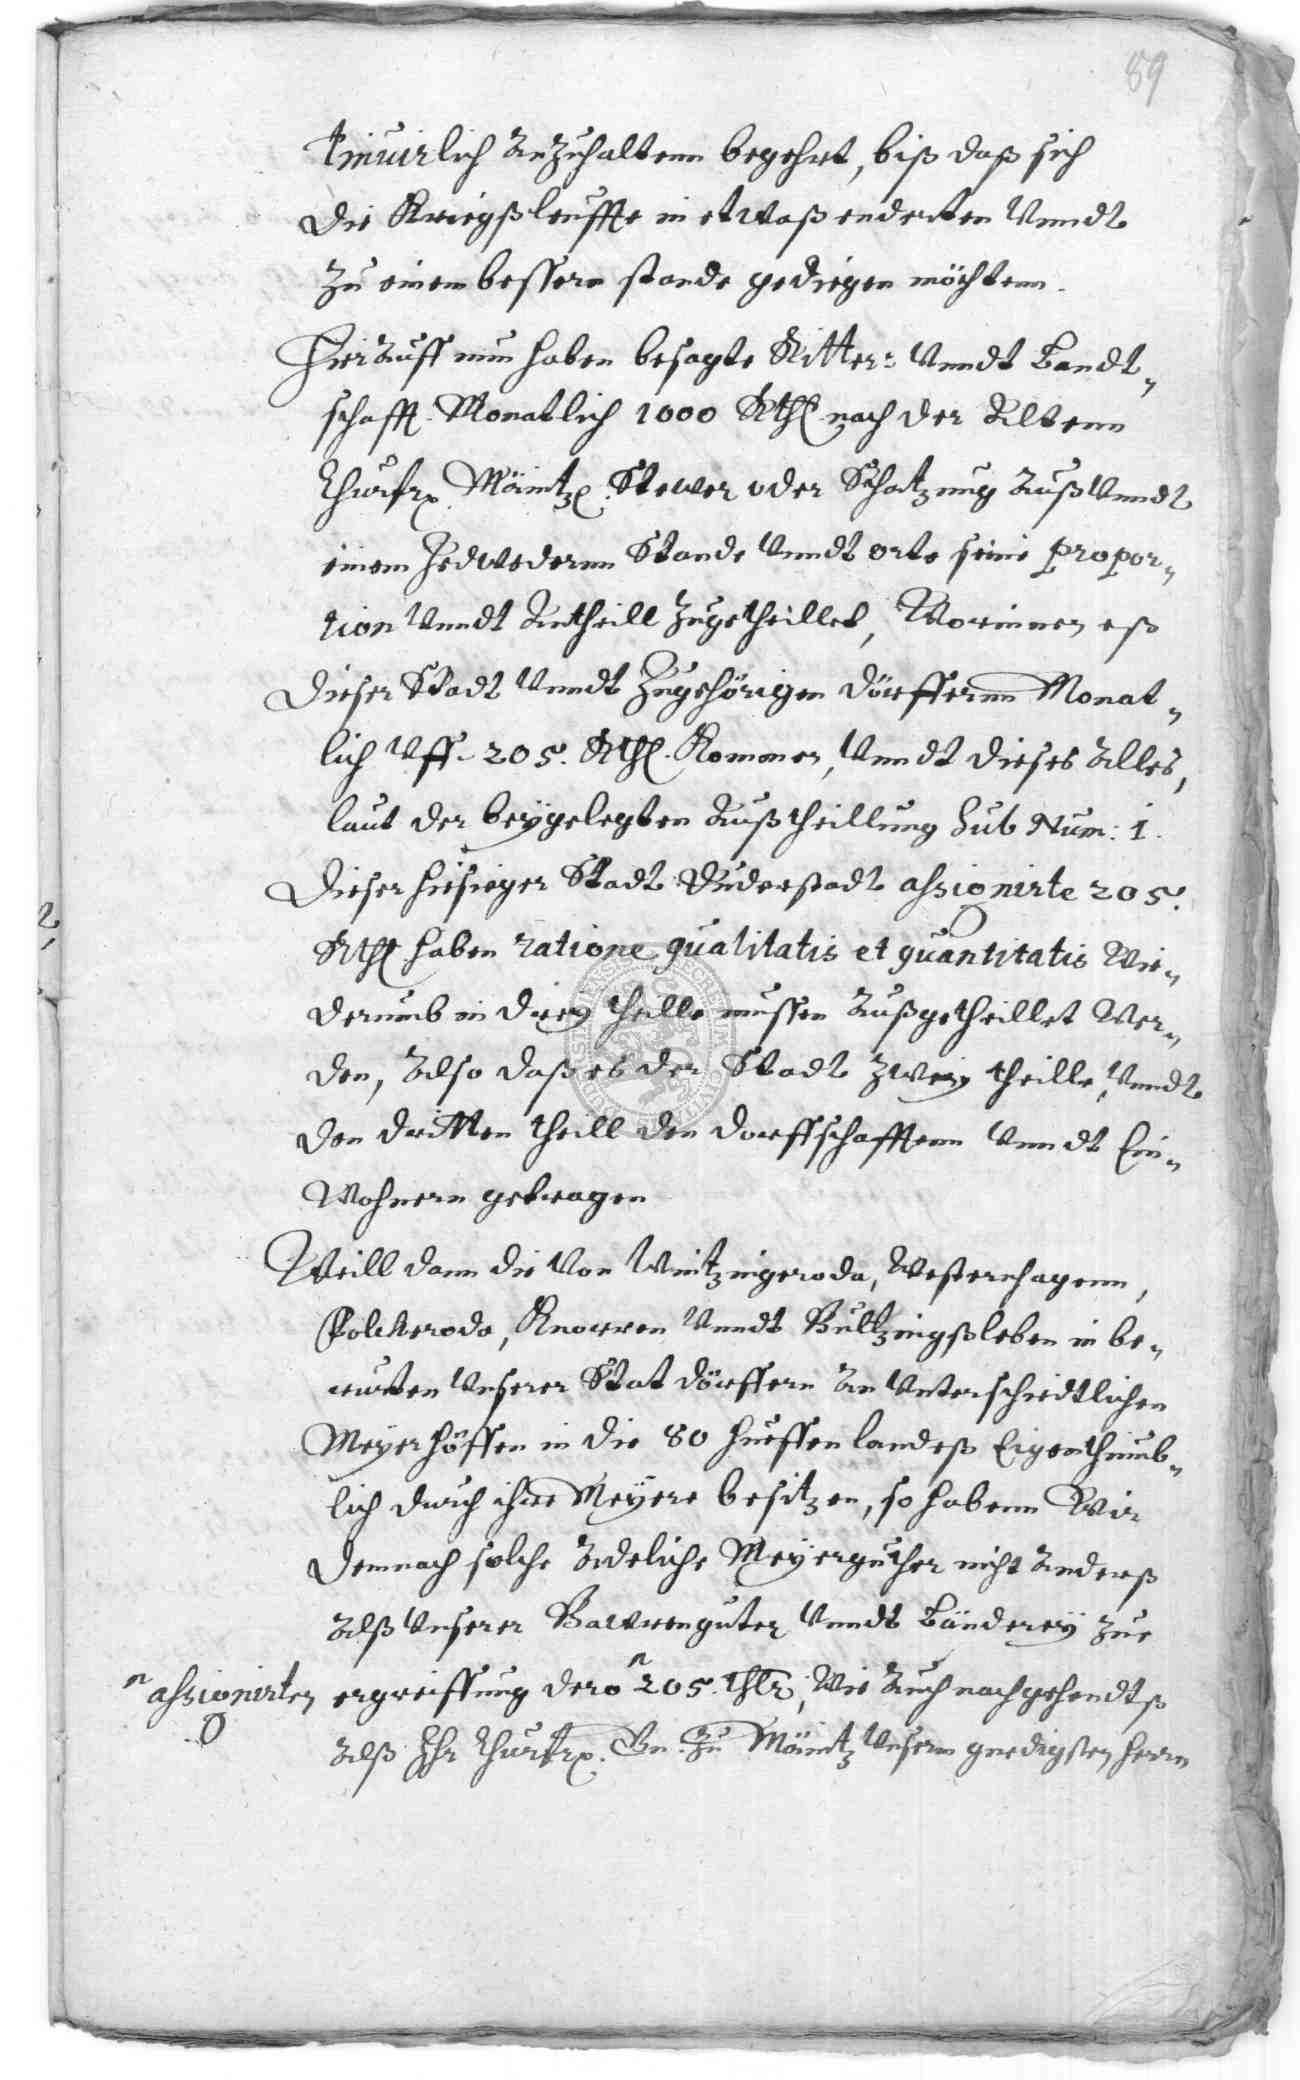 89
tinuirlich Anzuhaltenn begehrt, biß daß sich
die Kriegßleuffte in etwaß enderten Vnndt
zu einem bessern stande gedeigen möchtenn.
Hierauff nun haben besagte Ritter: Vnndt Landt„
schafft Monatlich 1000 Rthl. nach der Altenn
Churfr. Mäintz. Stewer oder Schatzung Auß Vnndt
einem Jedwedernn Stande Vnndt orte seine propor„
tion Vnndt Antheill Zugetheillet, Worinnen eß
dieser Stadt Vnndt Zugehörigen dörffernn Monat„
lich Vff. 205. Rthl. Kommen, Vnndt dieses Alles,
laut der beÿgelegten Außtheillung Sub Num: 1.
Dieser hiesieger Stadt Duderstadt assignirte 205.
Rthl haben ratione qualitatis et quantitatis Wie„
derumb in dreÿ theille mussen Außgetheillet Wer„
den, Also daß es der Stadt zweÿ theille, Vnndt
den dritten theill den dorffschafftenn Vnndt Ein„
Wohnern getragen
Weill dann die Von Wintzingeroda, Westernhagenn,
Knorren Vnndt Bultzingßleben in be„
rurten Vnserer Stat dörffern An Vnterschiedtlichen
Meyerhöffen in die 80 hueffen landeß Eigenthumb„
lich durch ihre Meÿere besitzen, so habenn Wir
demnach solche Adeliche Meÿerguther nicht Anderß
Alß Vnserer Bawrenguter Vnndt Länderey zue
ergreiffung dero ⌃ 205. thlr, Wie Auch nachgehendtß
⌃ assignirten
Alß Ihr Churfr. Gn. Zu Mäintz Vnserm gnedigsten herrn